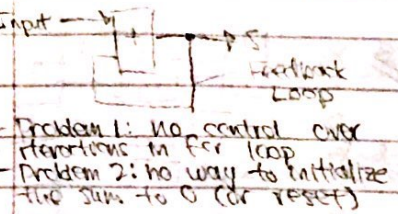 Input
+
S
Feedback
Loop
- Problem 1: no control over
iterations in for loop
- Problem 2: no way to initialize
the sum to 0 (or reset)